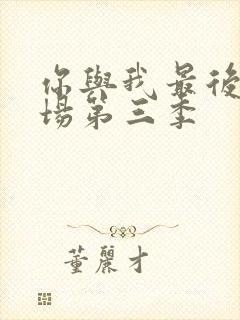 你與我最後
場第三季
董麗才